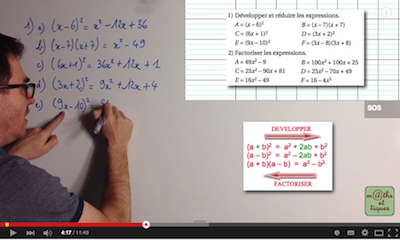 1) a) (x-6)² = x² - 12x + 36
b) (x-7)(x+7) = x² - 49
c) (6x+1)² = 36x² + 12x + 1
d) (3x+2)² = 9x² + 12x + 4
e) (9x-10)² = 8
1) Développer et réduire les expressions.
A = (x – 6)² B = (x – 7)(x + 7)
C = (6x + 1)² D = (3x + 2)²
E = (9x – 10)² F = (3x – 8)(3x + 8)
2) Factoriser les expressions.
A = 49x² – 9 B = 100x² + 100x + 25
C = 25x² – 90x + 81 D = 25x² – 70x + 49
E = 16x² – 49 F = 16 – 4x²
SOS
DEVELOPPER
(a + b)² = a² + 2ab + b²
(a – b)² = a² – 2ab + b²
(a + b)(a – b) = a² – b²
FACTORISER
m@ths
et
tiques
4:17 / 11:49